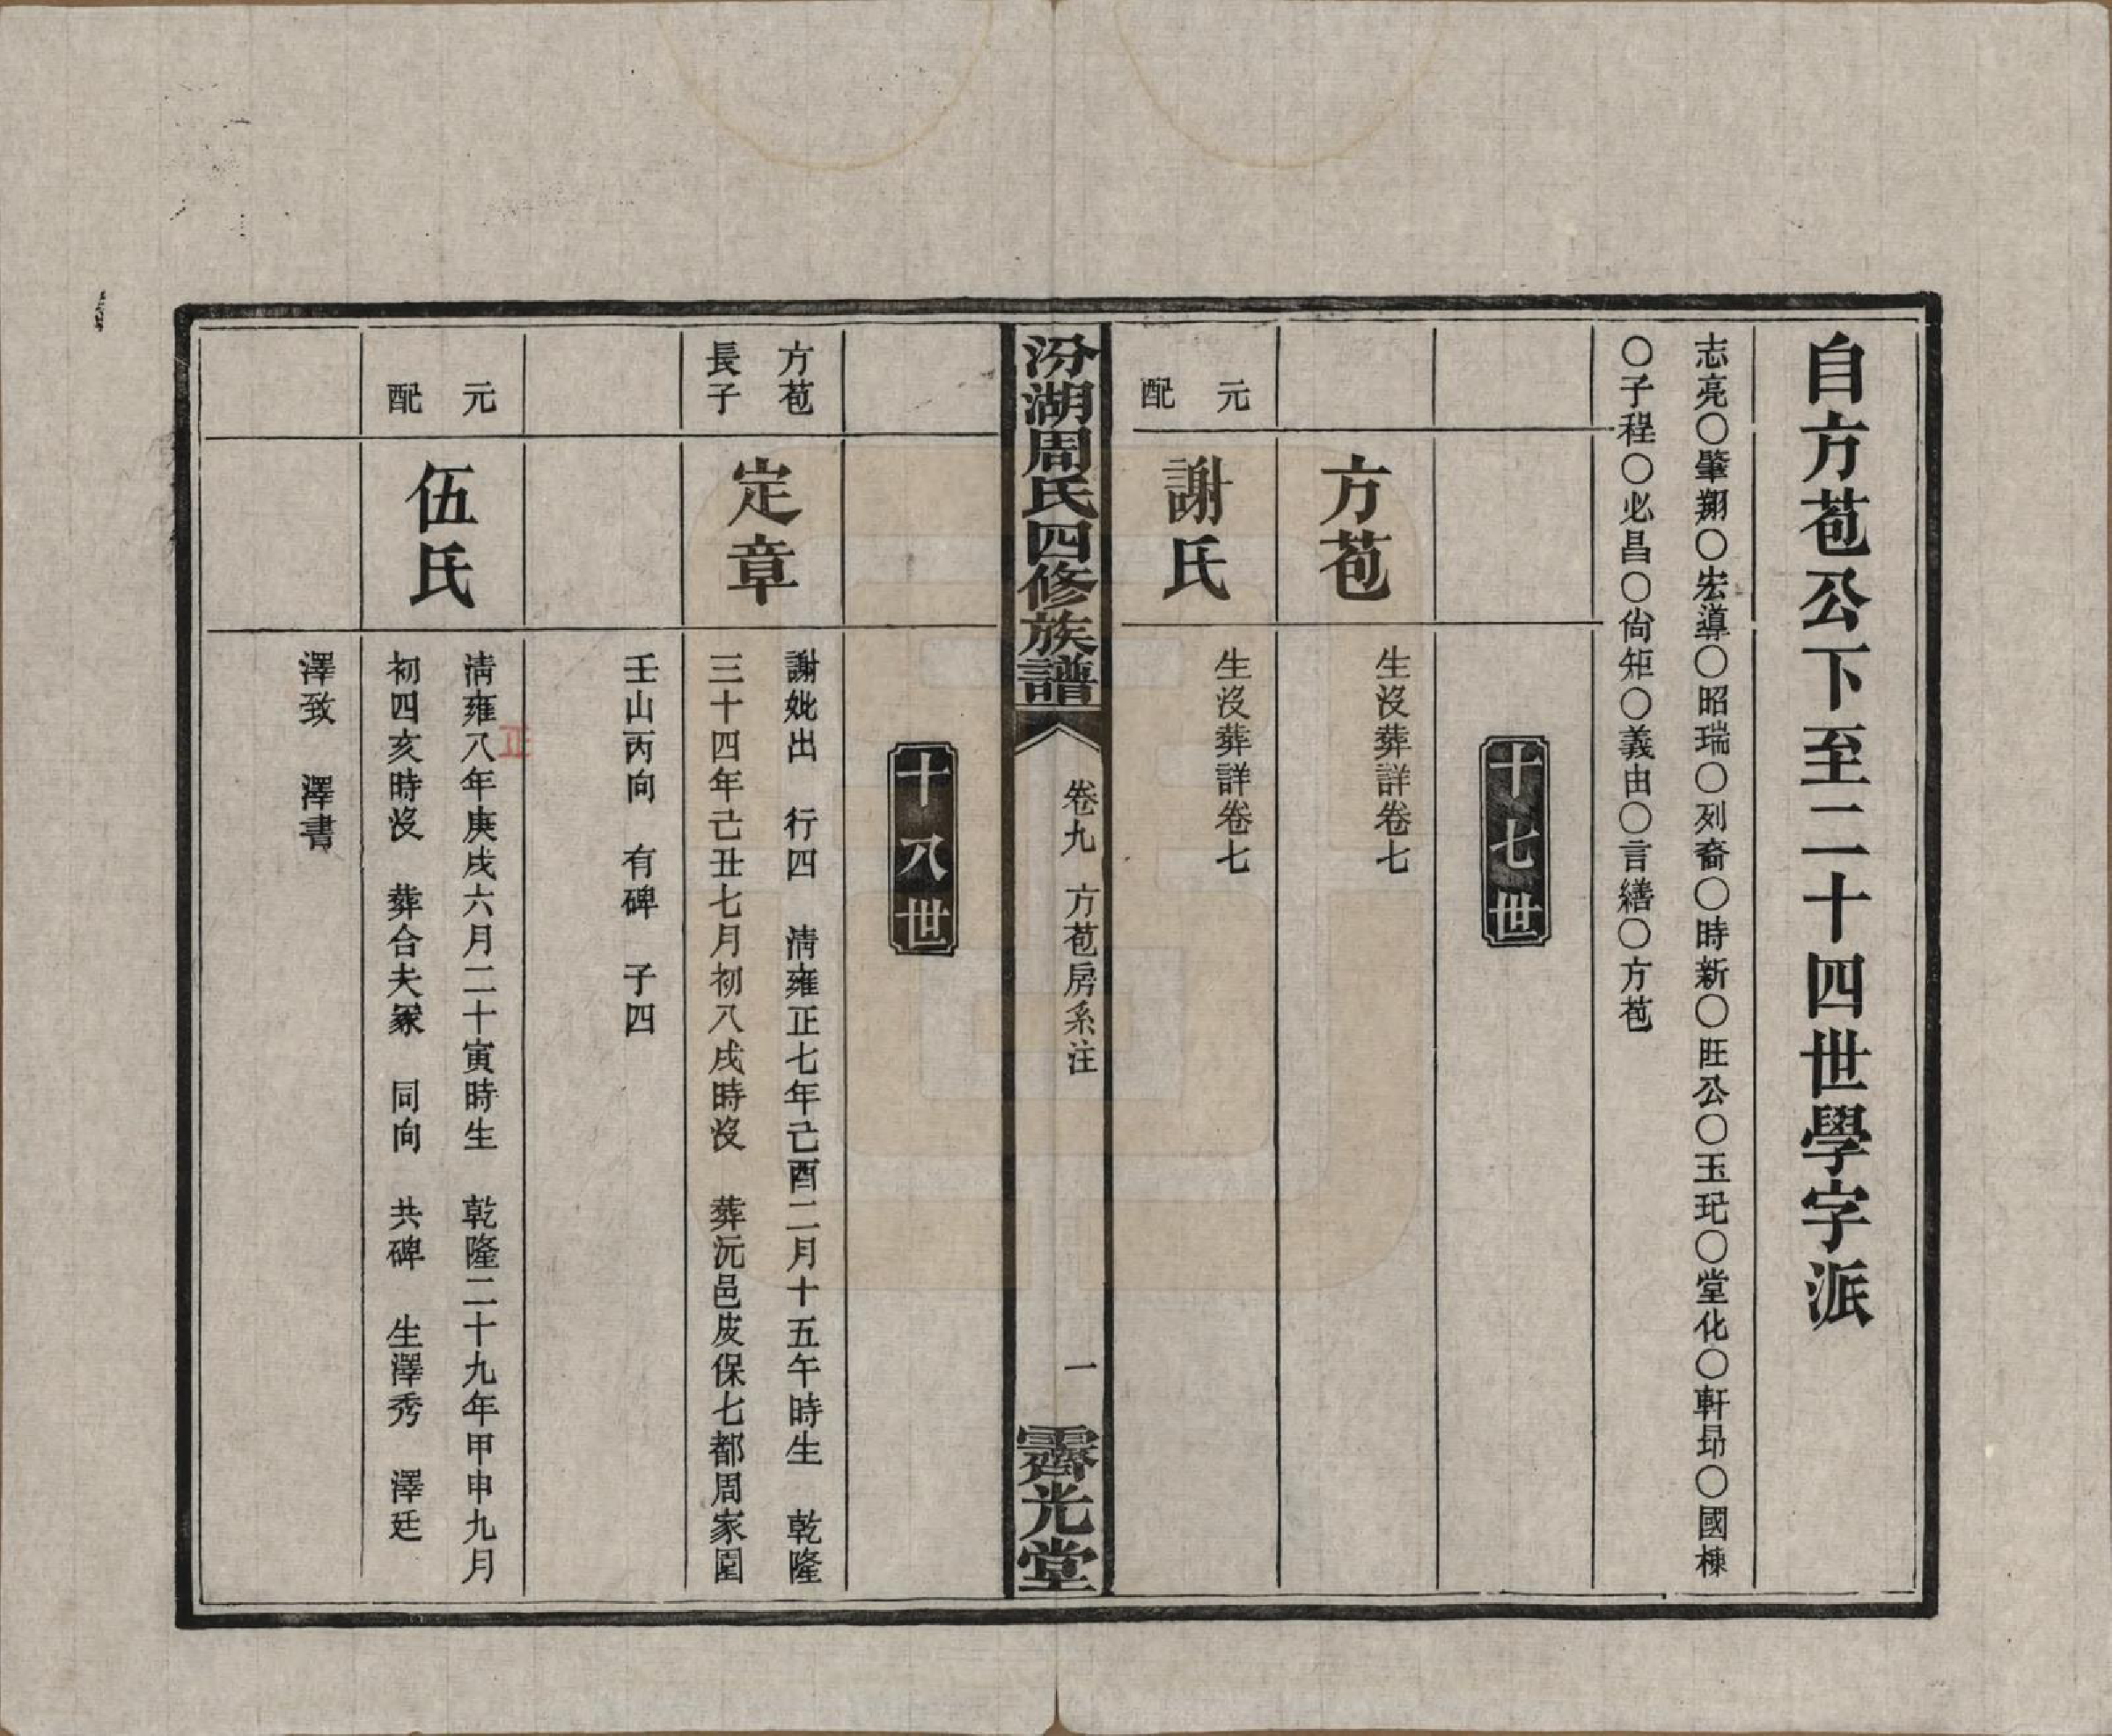 自方苞公下至二十四世學字派
志亮〇肇翔〇宏導〇昭瑞〇列裔〇時新〇旺公〇玉玘〇堂化〇軒昻〇國棟
〇子程〇必昌〇尙矩〇義由〇言繕〇方苞
十七世
方苞
生沒葬詳卷七
元配
謝氏
生沒葬詳卷七
汾湖周氏四修族譜
卷九 方苞房系注
一
霽光堂
十八世
方苞
長子
定章
謝妣出 行四 淸雍正七年己酉二月十五午時生 乾隆
三十四年己丑七月初八戌時沒 葬沅邑皮保七都周家園
壬山丙向 有碑 子四
元配
伍氏
淸雍八年庚戌六月二十寅時生 乾隆二十九年甲申九月
正
初四亥時沒 葬合夫冢 同向 共碑 生澤秀 澤廷
澤致 澤書